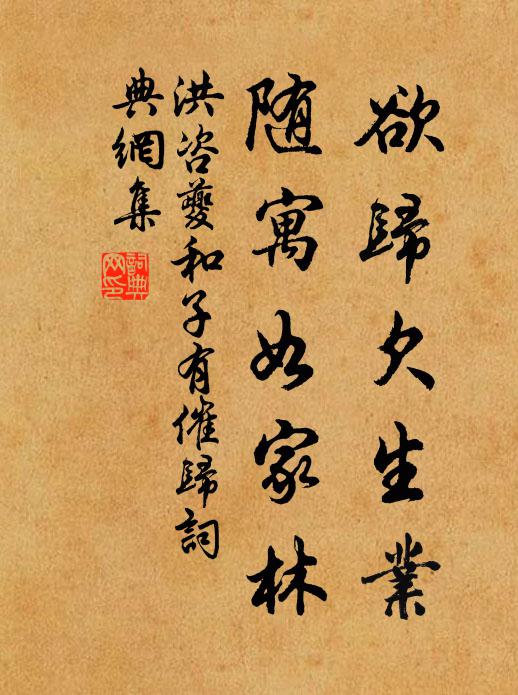 欲歸欠生業
随寓如家林
洪咨夔和子有催歸詞
典網集
詞典
网印